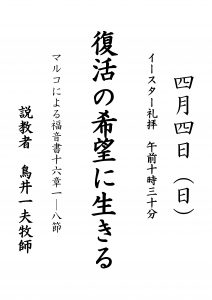 四月四日（日）
イースター礼拝　午前十時三十分
復活の希望に生きる
マルコによる福音書十六章一―八節
説教者　鳥井一夫牧師